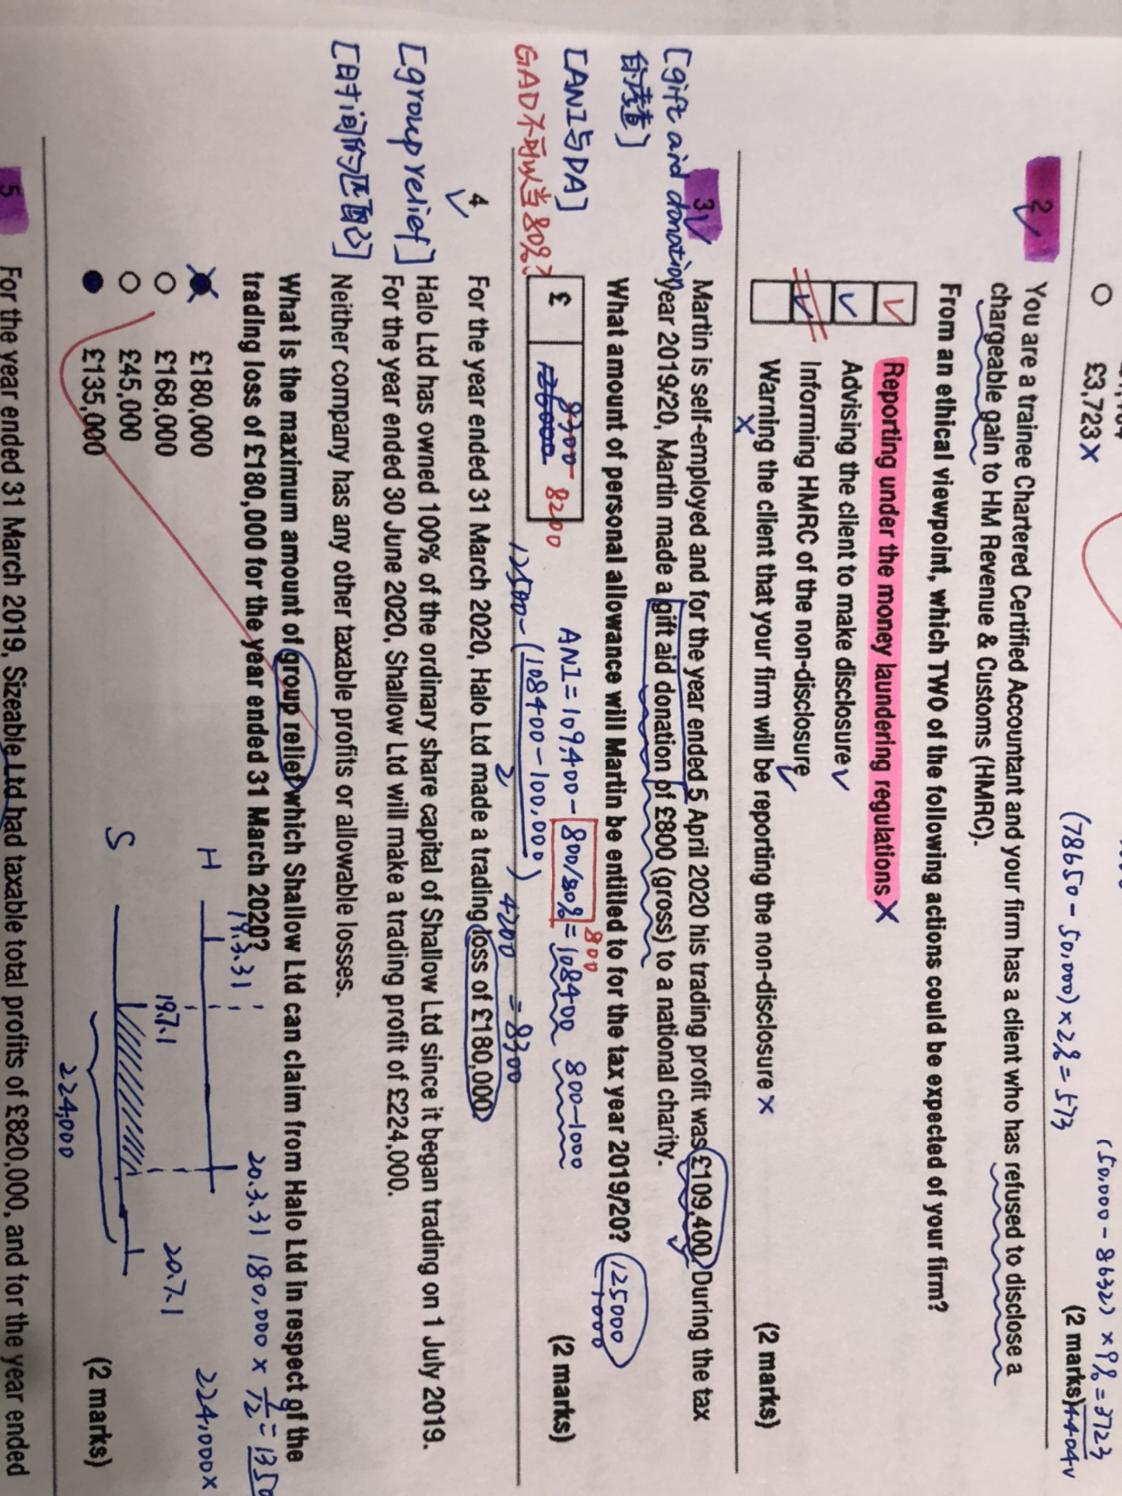 £3,723 X
(50,000 - 8632) × 9% = 3723
(78650 - 50,000) × 2% = 573
(2 marks) 4404 v
2
You are a trainee Chartered Certified Accountant and your firm has a client who has refused to disclose a
chargeable gain to HM Revenue & Customs (HMRC).
From an ethical viewpoint, which TWO of the following actions could be expected of your firm?
Reporting under the money laundering regulations X
Advising the client to make disclosure
Informing HMRC of the non-disclosure
Warning the client that your firm will be reporting the non-disclosure X
(2 marks)
3
Martin is self-employed and for the year ended 5 April 2020 his trading profit was £109,400. During the tax
year 2019/20, Martin made a gift aid donation of £800 (gross) to a national charity.
What amount of personal allowance will Martin be entitled to for the tax year 2019/20?
[gift aid donation
的考查]
[ANI与DA]
GAD不可以当80%
£
8300 8200
12500
1000
ANI = 109,400 - 800/80% = 108400 800-1000
800
(2 marks)
12500 - (108400 - 100,000) 4200 = 8300
2
4
For the year ended 31 March 2020, Halo Ltd made a trading loss of £180,000.
[group relief]
Halo Ltd has owned 100% of the ordinary share capital of Shallow Ltd since it began trading on 1 July 2019.
For the year ended 30 June 2020, Shallow Ltd will make a trading profit of £224,000.
[时间的匹配]
Neither company has any other taxable profits or allowable losses.
What is the maximum amount of group relief which Shallow Ltd can claim from Halo Ltd in respect of the
trading loss of £180,000 for the year ended 31 March 2020?
£180,000
£168,000
£45,000
£135,000
H
19.3.31
20.3.31
180,000 ×
224,000 X
19.7.1
20.7.1
S
224,000
(2 marks)
5
For the year ended 31 March 2019, Sizeable Ltd had taxable total profits of £820,000, and for the year ended